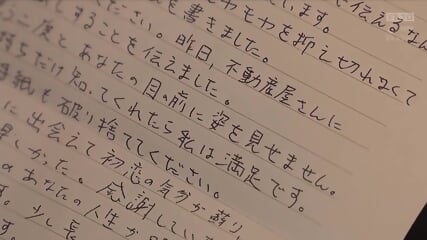 います。
伝えるなん
モヤモヤを抑え切れなくて
を書きました。
ださい。昨日、不動産屋さんに
することを伝えました。
う二度とあなたの目の前に姿を見せません。
持ちだけ知ってくれたら私は満足です。
手紙も破り捨ててください。
に出会えて初恋の気分が蘇り
しかった。感謝してい
あなたの人生が
す。少し長